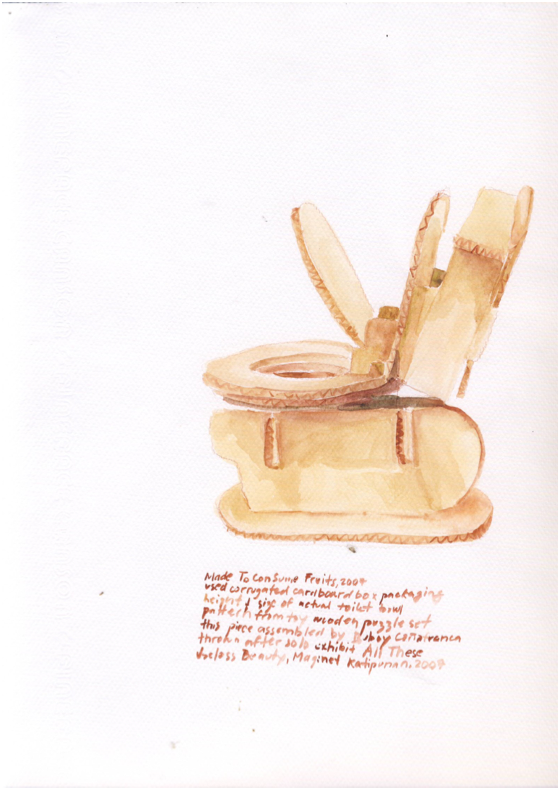 Made To Consume Fruits, 2007
used corrugated cardboard box packaging
height & size of actual toilet bowl
pattern from toy wooden puzzle set
this piece assembled by Boboy
thrown after solo exhibit All These
Useless Beauty, Maginet Katipunan. 2007